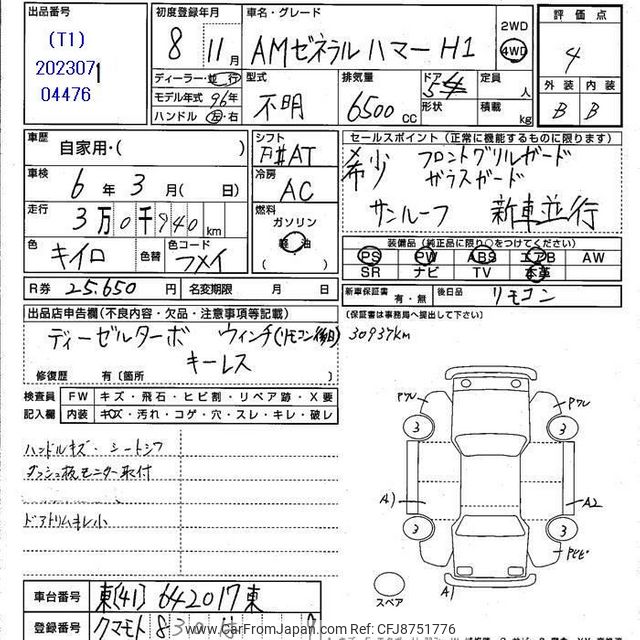 出品番号
(T1)
202307
04476
初度登録年月
8 11月
車名・グレード
AMゼネラル ハマー H1
2WD
4WD
評価点
4
外装 内装
B B
ディーラー・並行
モデル年式 96年
ハンドル 左・右
型式
不明
排気量
6500 CC
ドア
形状
定員 人
積載 kg
車歴
自家用・( )
シフト
車検
6年 3月( 日)
冷房
AC
走行
3万0千940km
燃料
ガソリン
軽油
色
キイロ
色替
色コード
フメイ
R券 25.650 円
名変期限 月 日
セールスポイント(正常に機能するものに限ります)
希少 フロントグリルガード
ガラスガード
サンルーフ 新車並行
装備品(純正品に限り○をつけてください)
PS PW ABS エアB AW
SR ナビ TV 本革
新車保証書 有・無
後日品
リモコン
(保証書は事務局へ提出して下さい)
出品店申告欄(不良内容・欠品・注意事項等記載)
ディーゼルターボ ウィンチ(リモコン後日)
キーレス
30937km
修復歴 有〔箇所 〕
検査員 FW キズ・飛石・ヒビ割・リペア跡・X要
記入欄 内装 キズ・汚れ・コゲ・穴・スレ・キレ・破レ
ハンドルキズ・シートシワ
ダッシュ板モニター取付
ドアトリムキレ小
3 3
A1 A2
3 3
A1
スペア
車台番号 東(41)642017東
登録番号 クマモト8
www.CarFromJapan.com Ref: CFJ8751776